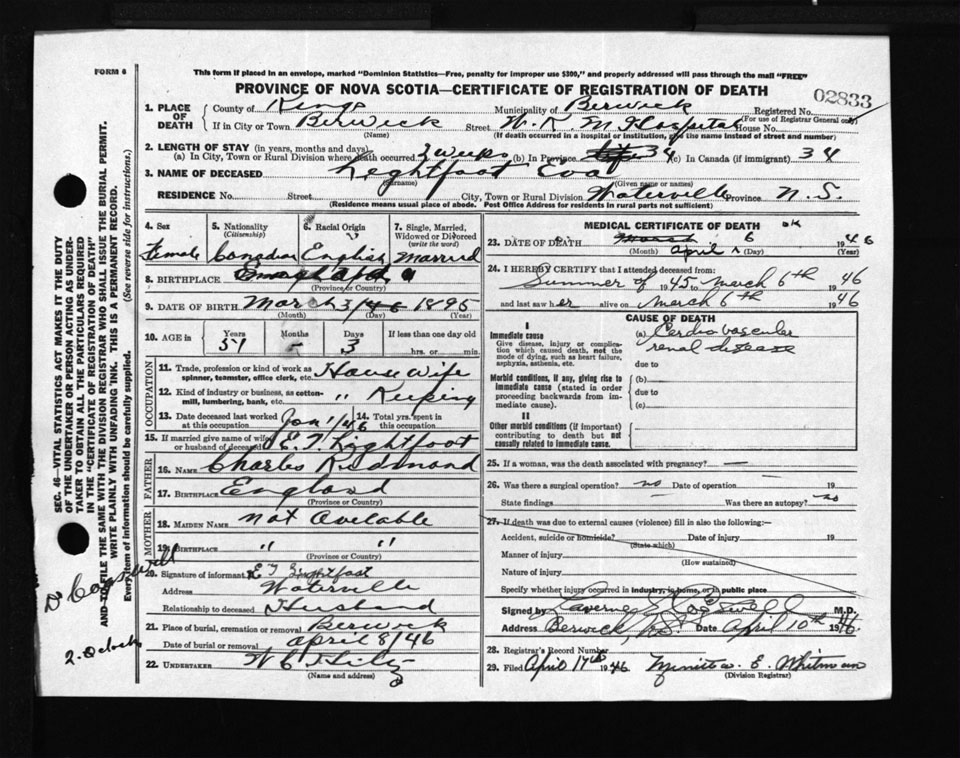 FORM 6
This form if placed in an envelope, marked "Dominion Statistics—Free, penalty for improper use $300," and properly addressed will pass through the mail "FREE"
PROVINCE OF NOVA SCOTIA—CERTIFICATE OF REGISTRATION OF DEATH
02833
1. PLACE OF DEATH County of Kings Municipality of Berwick Registered No.
(For use of Registrar General only)
If in City or Town Berwick Street W. K. M Hospital House No.
(Name) (If death occurred in a hospital or institution, give the name instead of street and number)
2. LENGTH OF STAY (in years, months and days)
(a) In City, Town or Rural Division where death occurred. 3 weeks (b) In Province 34 (c) In Canada (if immigrant) 34
3. NAME OF DECEASED Lightfoot Eva
(Surname) (Given name or names)
RESIDENCE No. Street City, Town or Rural Division Waterville Province N. S.
(Residence means usual place of abode. Post Office Address for residents in rural parts not sufficient)
4. Sex Female
5. Nationality (Citizenship) Canadian
6. Racial Origin English
7. Single, Married, Widowed or Divorced (write the word) Married
8. BIRTHPLACE
(Province or Country)
9. DATE OF BIRTH March 3/ 1895
(Month) (Day) (Year)
10. AGE in Years 51 Months - Days 3 If less than one day old
hrs. or min.
OCCUPATION
11. Trade, profession or kind of work as spinner, teamster, office clerk, etc. House wife
12. Kind of industry or business, as cotton-mill, lumbering, bank, etc. " Keeping
13. Date deceased last worked at this occupation Jan 1/46
14. Total yrs. spent in this occupation
15. If married give name of wife or husband of deceased E. T. Lightfoot
FATHER
16. NAME Charles Redmond
17. BIRTHPLACE England
(Province or Country)
MOTHER
18. MAIDEN NAME not Avelable
19. BIRTHPLACE " "
(Province or Country)
20. Signature of informant E T Lightfoot
Address Waterville
Relationship to deceased Husband
21. Place of burial, cremation or removal Berwick
Date of burial or removal april 8/46
22. UNDERTAKER
(Name and address)
MEDICAL CERTIFICATE OF DEATH
OK
23. DATE OF DEATH March April 6 1946
(Month) (Day) (Year)
24. I HEREBY CERTIFY that I attended deceased from:
Summer of 1945 to march 6th 1946
and last saw her alive on march 6th 1946
CAUSE OF DEATH
I
Immediate cause
Give disease, injury or complication which caused death, not the mode of dying, such as heart failure, asphyxia, asthenia, etc.
(a) Cardio vascular
renal disease
due to
Morbid conditions, if any, giving rise to immediate cause (stated in order proceeding backwards from immediate cause).
(b)
due to
(c)
II
Other morbid conditions (if important) contributing to death but not causally related to immediate cause.
25. If a woman, was the death associated with pregnancy? —
26. Was there a surgical operation? no Date of operation 19
State findings Was there an autopsy? no
27. If death was due to external causes (violence) fill in also the following:—
Accident, suicide or homicide? Date of injury 19
(State which)
Manner of injury
(How sustained)
Nature of injury
Specify whether injury occurred in industry, in home, or in public place
Signed by Laverne Cogswell M.D.
Address Berwick N.S. Date April 10th 1946.
28. Registrar's Record Number
29. Filed April 17th 1946 E. Whitman
(Division Registrar)
SEC. 46—VITAL STATISTICS ACT MAKES IT THE DUTY
OF THE UNDERTAKER OR PERSON ACTING AS UNDER-
TAKER TO OBTAIN ALL THE PARTICULARS REQUIRED
IN THE "CERTIFICATE OF REGISTRATION OF DEATH"
AND TO FILE THE SAME WITH THE DIVISION REGISTRAR WHO SHALL ISSUE THE BURIAL PERMIT.
WRITE PLAINLY WITH UNFADING INK. THIS IS A PERMANENT RECORD.
Every item of information should be carefully supplied. (See reverse side for instructions).
Dr Cogswell
2. Oclock